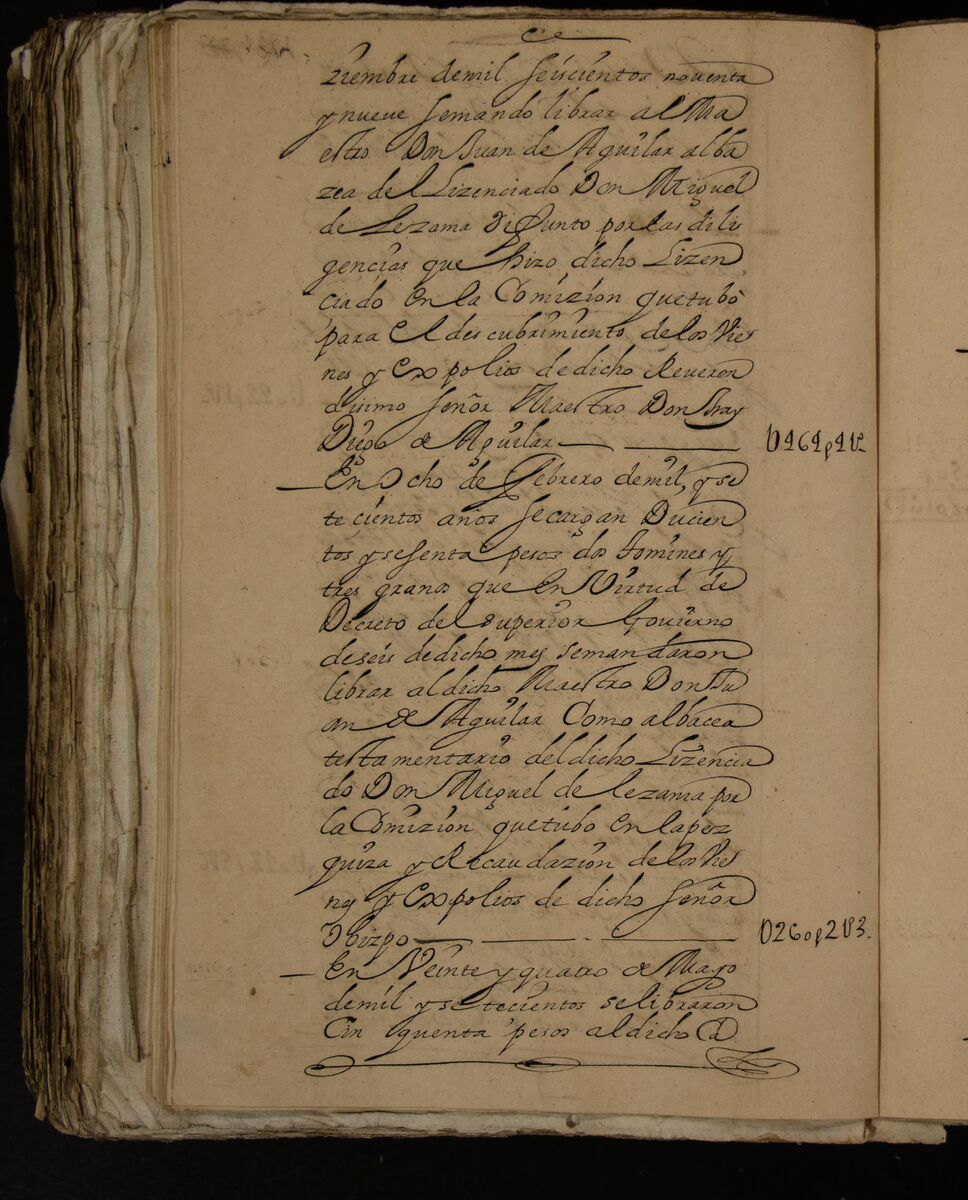 ce
ziembre demil seiscientos noventa
y nueve semando librar al Ma
estro Don Juan de Aguilar alba
zea del Lizenciado Don Miguel
de Lezama Difunto por las dili
gencias que hizo dicho Lizen
ciado en la Comizion que tubo
para el descubrimiento de los Vie
nes y expolios de dicho Reveren
disimo señor Maestro Don fray
Diego de Aguilar
U464p4U2
En Ocho de Febrero demil, y se
tecientos años se cargan Ducien
tos y sesenta pesos dos tomines y
tres granos que en Virtud de
Decreto del superior Govierno
de seis de dicho mes se mandaron
librar al dicho Maestro Don Ju
an de Aguilar Como albacea
testamentario del dicho Lizencia
do Don Miguel de lezama por
la Comizion que tubo en la pez
quiza y Recaudazion de los Vie
nes y expolios de dicho señor
Obizpo
U260p2U3.
En Veinte y quatro de Mayo
demil y setecientos se libraron
Cin quenta pesos al dicho